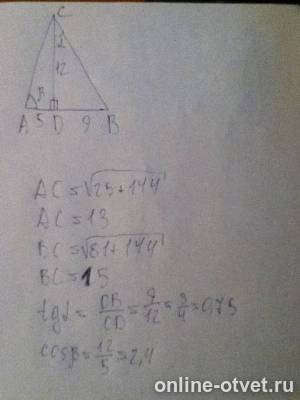 C
α
12
β
A 5 D 9 B
AC = √25+144
AC = 13
BC = √81+144
BC = 15
tgα = DB/CD = 9/12 = 3/4 = 0,75
cosβ = 12/5 = 2,4
online-otvet.ru